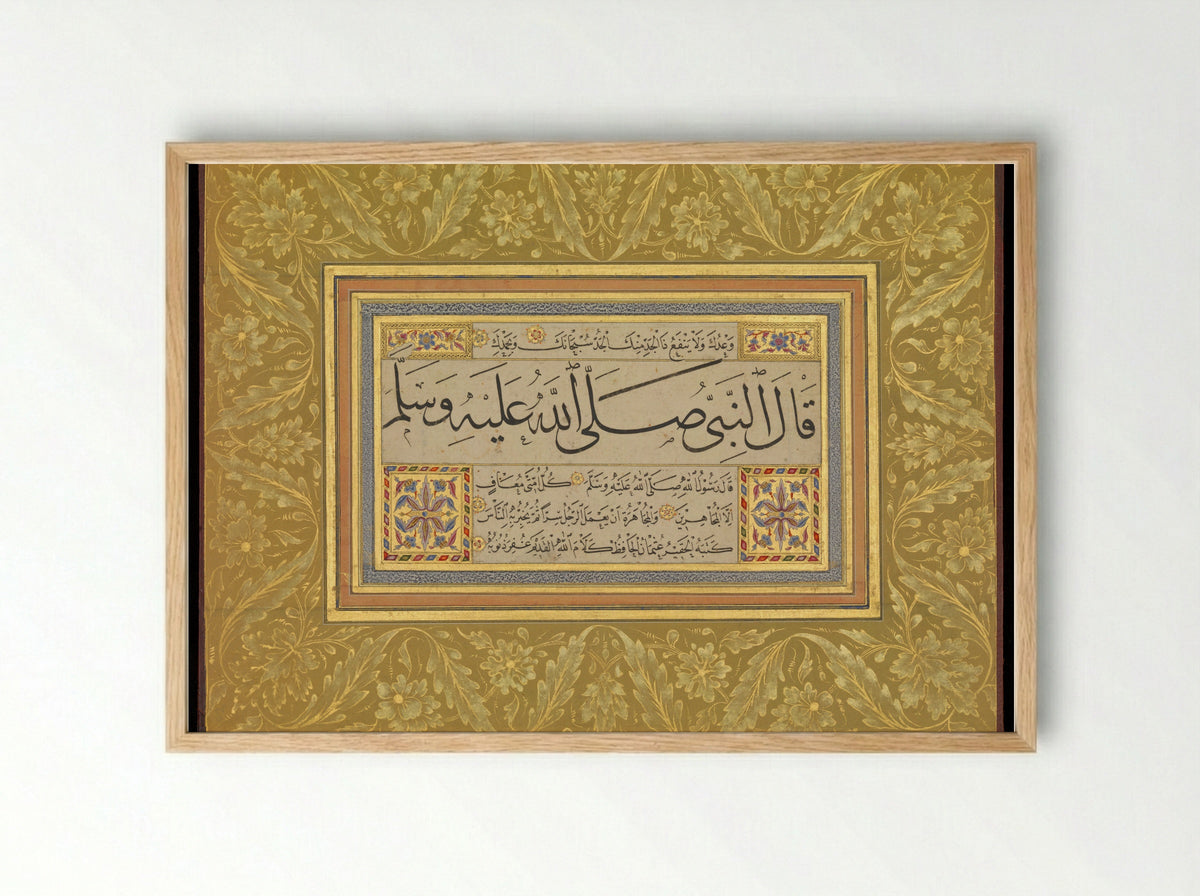 وَعْدَكَ وَلَا يَنْفَعُ ذَا الْجَدِّ مِنْكَ الْجَدُّ سُبْحَانَكَ وَبِحَمْدِكَ
قَالَ النَّبِيُّ صَلَّى اللهُ عَلَيْهِ وَسَلَّمَ
قَالَ رَسُولُ اللهِ صَلَّى اللهُ عَلَيْهِ وَسَلَّمَ كُلُّ أُمَّتِي مُعَافًى
إِلَّا الْمُجَاهِرِينَ وَالْمُجَاهَرَةُ أَنْ يَعْمَلَ الرَّجُلُ سِرًّا ثُمَّ يُخْبِرُ بِهِ النَّاسَ
كَتَبَهُ الْحَقِيرُ عُثْمَانُ الْحَافِظُ كَلَامَ اللهِ الْقَدِيمِ غُفِرَ ذُنُوبُهُ